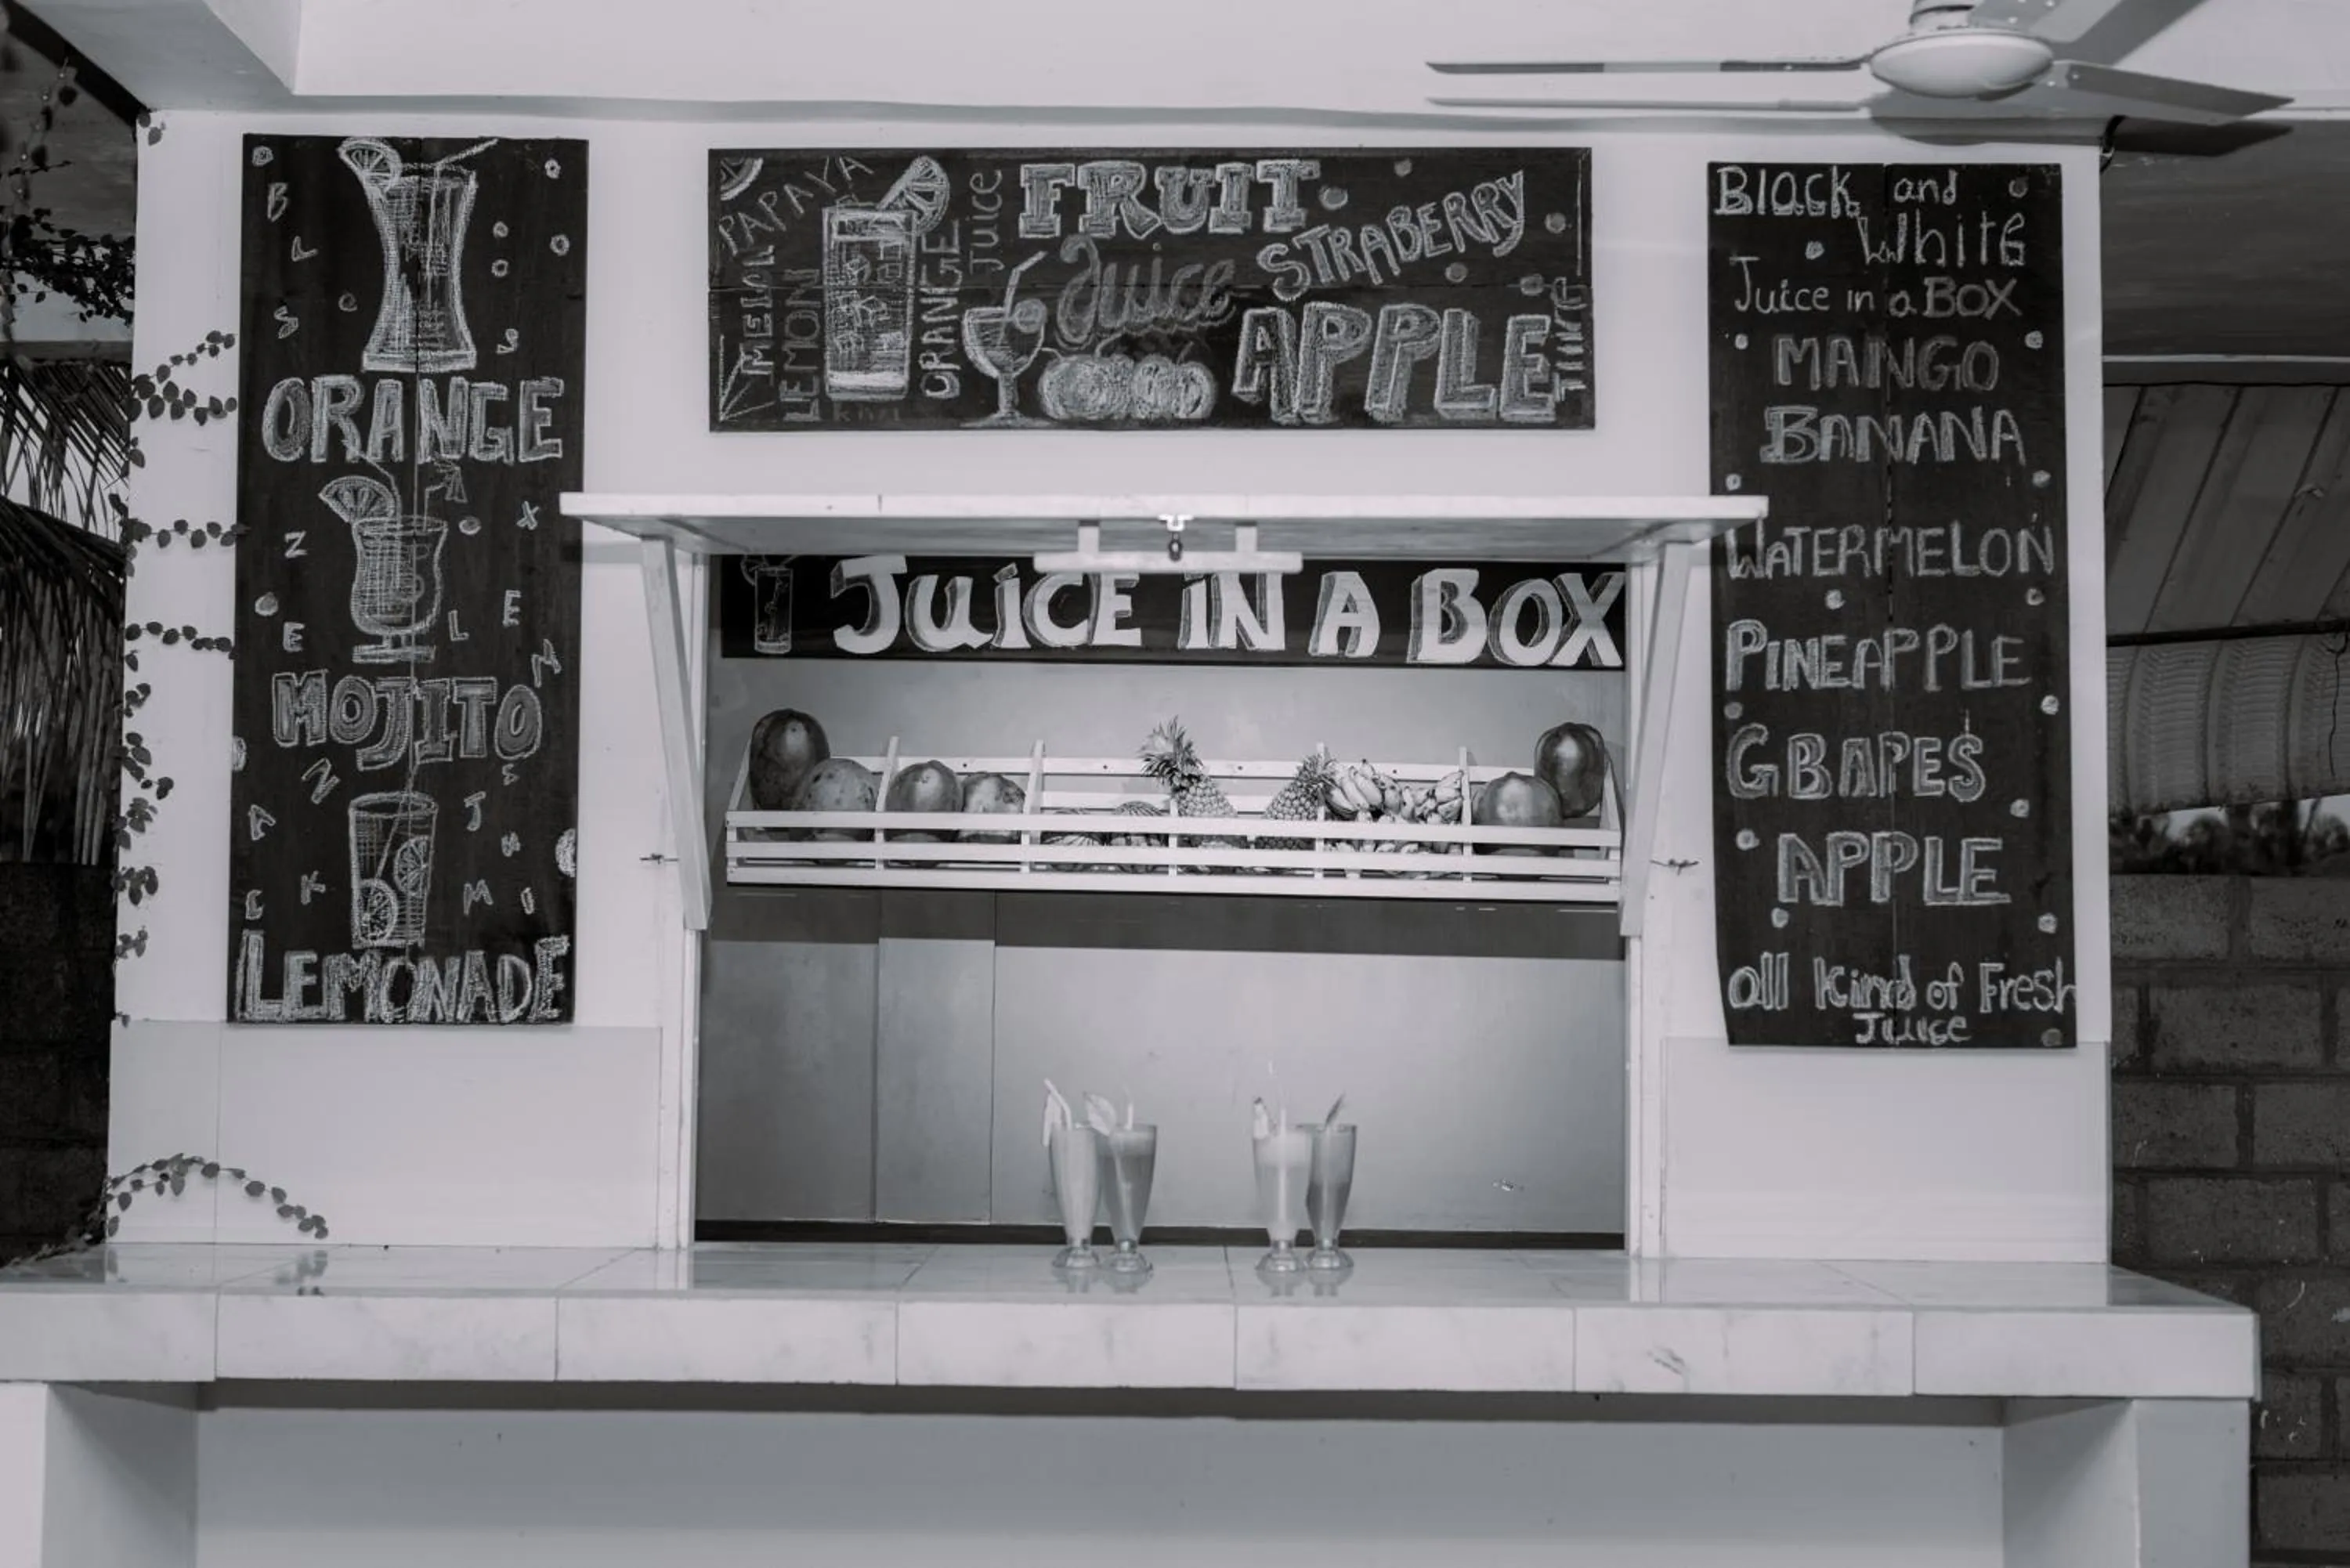 ORANGE
MOJITO
LEMONADE
PAPAYA
MELON
LEMON
ORANGE
Juice
FRUIT
Juice
STRABERRY
APPLE
JUiCE iN A BOX
Black and
White
Juice in a BOX
MANGO
BANANA
WATERMELON
PINEAPPLE
GBAPES
APPLE
all kind of Fresh
Juice